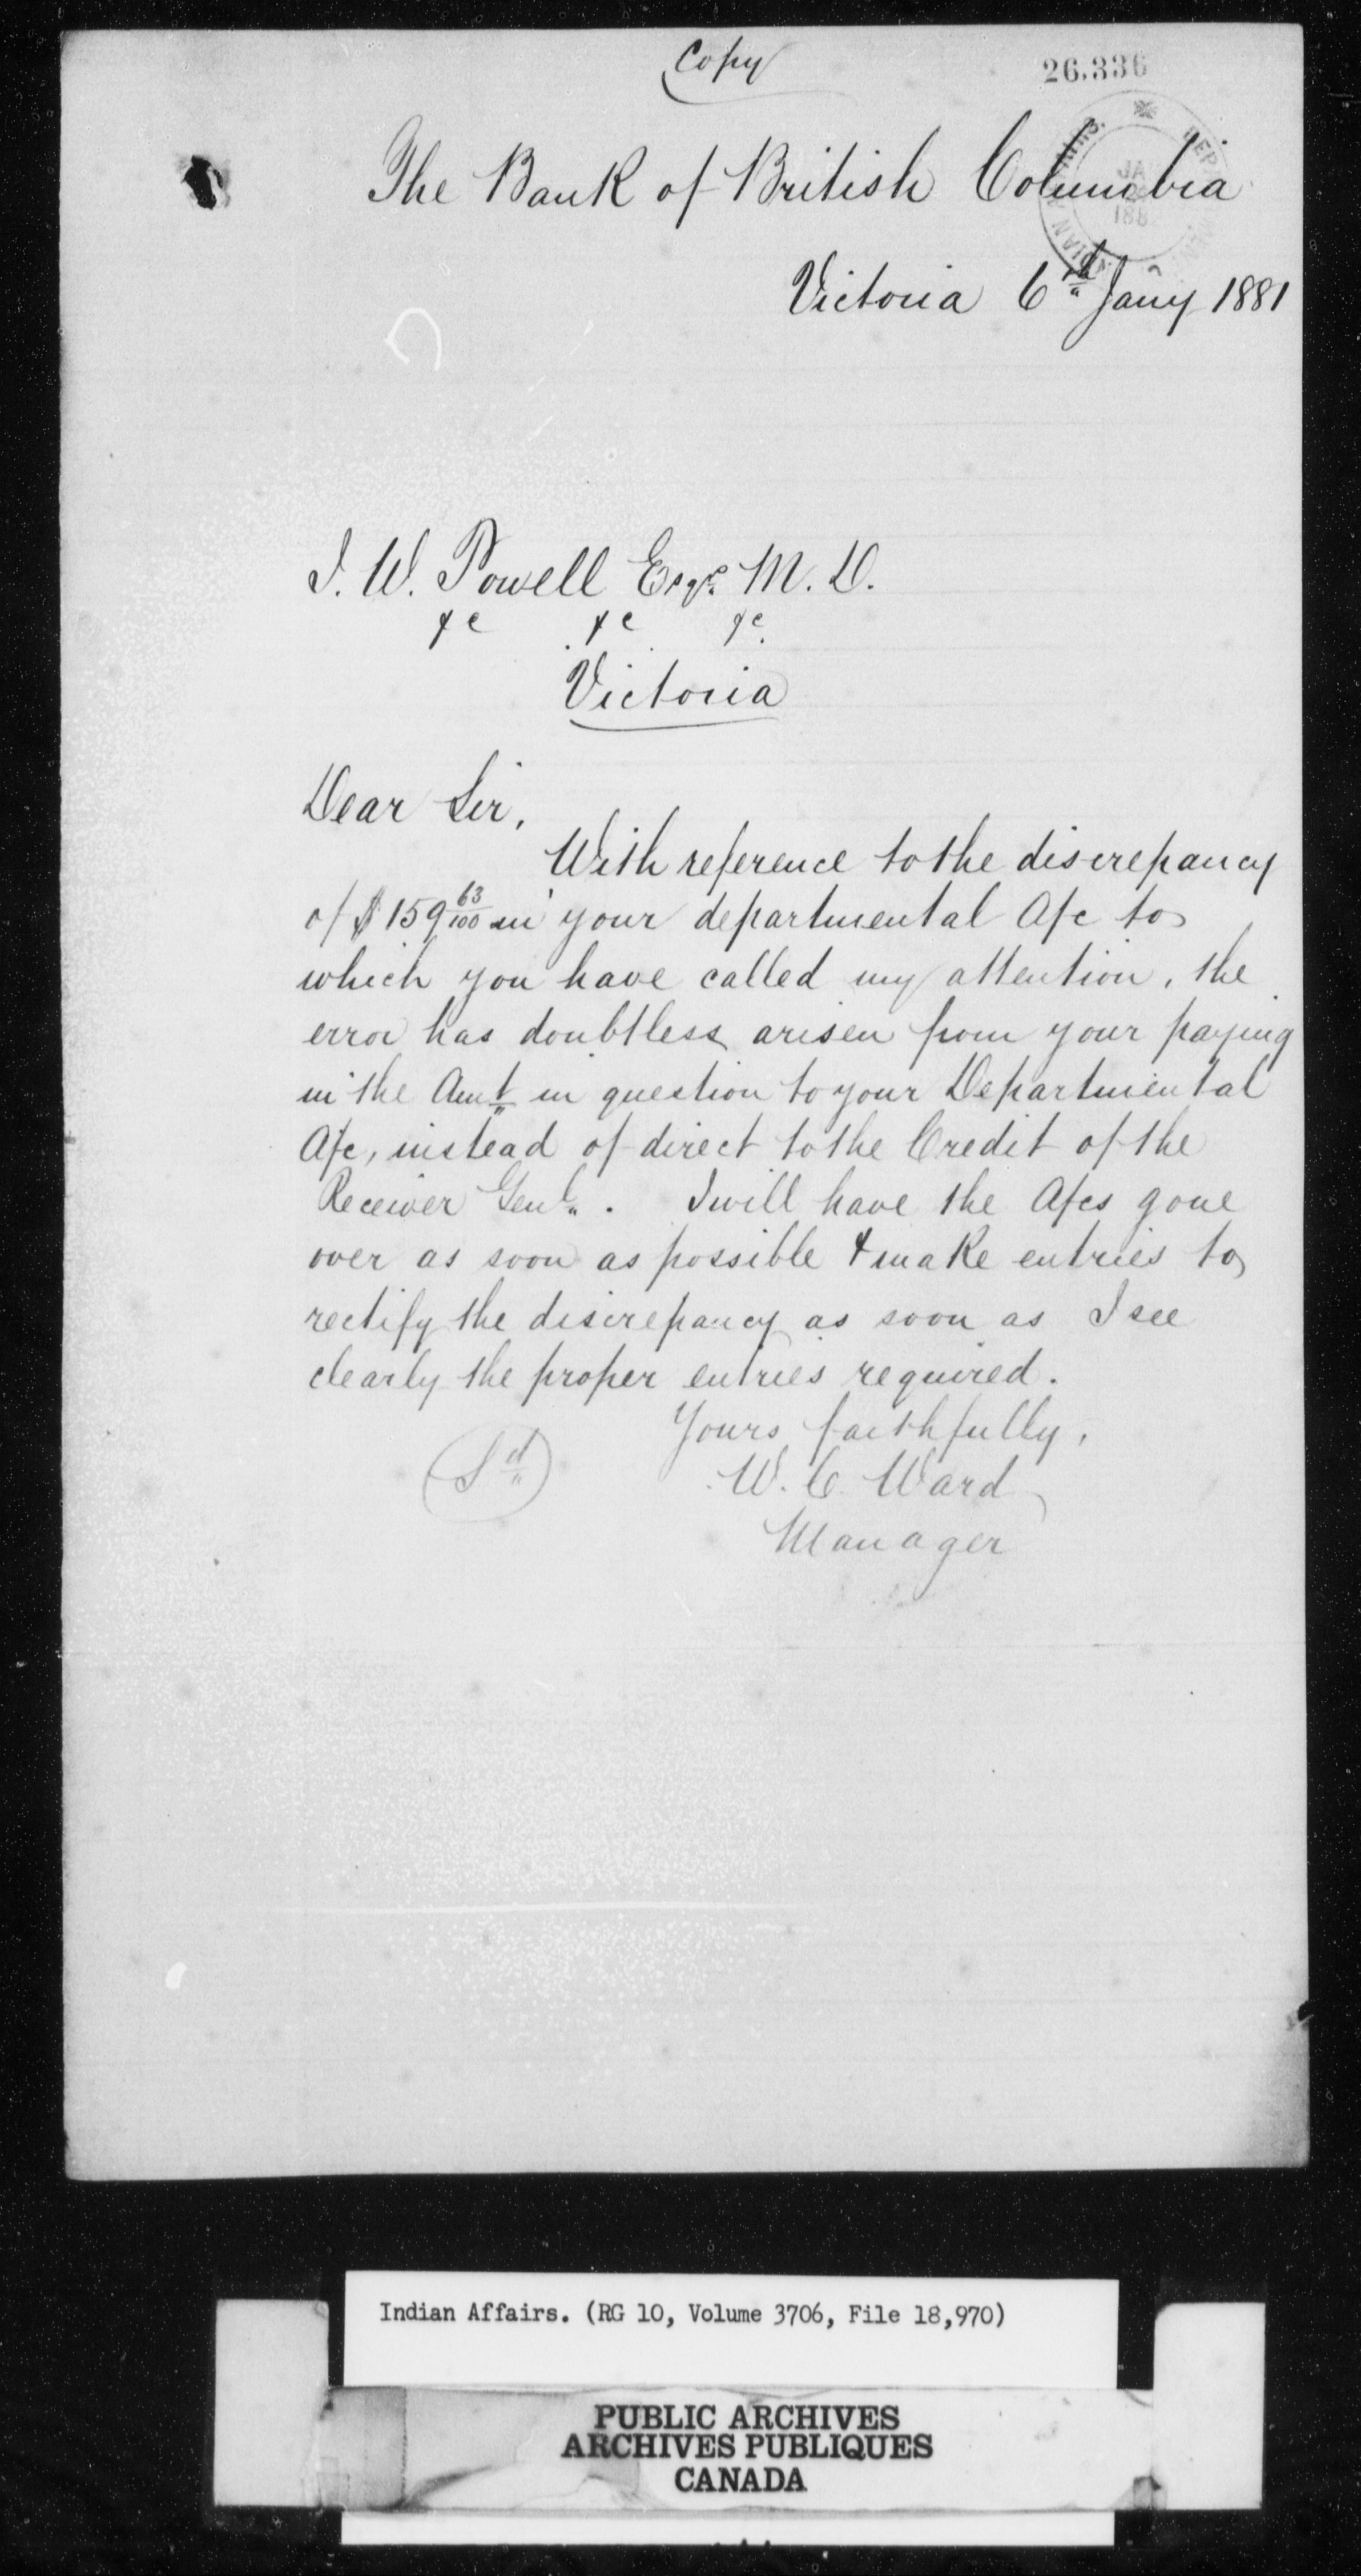 Copy
26.336
The Bank of British Columbia
Victoria 6th Jany 1881
I. W. Powell Esqre M. D.
&c &c &c
Victoria
Dear Sir,
With reference to the discrepancy
of $159 63/100 in your departmental A/c to
which you have called my attention, the
error has doubtless arisen from your paying
in the Amt in question to your Departmental
A/c, instead of direct to the Credit of the
Receiver Genl. I will have the A/cs gone
over as soon as possible & make entries to
rectify the discrepancy as soon as I see
clearly the proper entries required.
Yours faithfully,
(Sd) W. C. Ward
Manager
Indian Affairs. (RG 10, Volume 3706, File 18,970)
PUBLIC ARCHIVES
ARCHIVES PUBLIQUES
CANADA